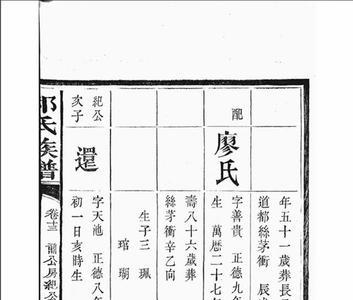 年五十一歲葬長
道都絲茅衝 辰
配
廖氏
字善貴 正德九年
生 萬曆二十七年
壽八十六歲葬
絲茅衝辛乙向
生子三 珮
琯 瑚
紀公
次子
還
字天池 正德八年
初一日亥時生
氏族譜
卷十三 公房紀公